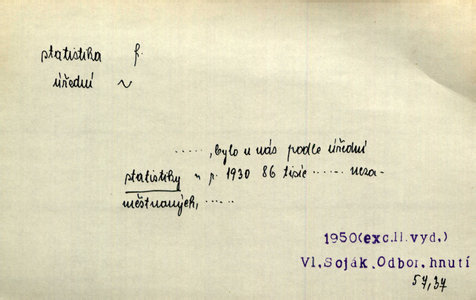 statistika f.
úřední ~
....., bylo u nás podle úřední
statistiky v r. 1930 86 tisíc ..... neza-
městnaných, .....
1950(exc.II.vyd.)
Vl.Soják.Odbor.hnutí
54,37